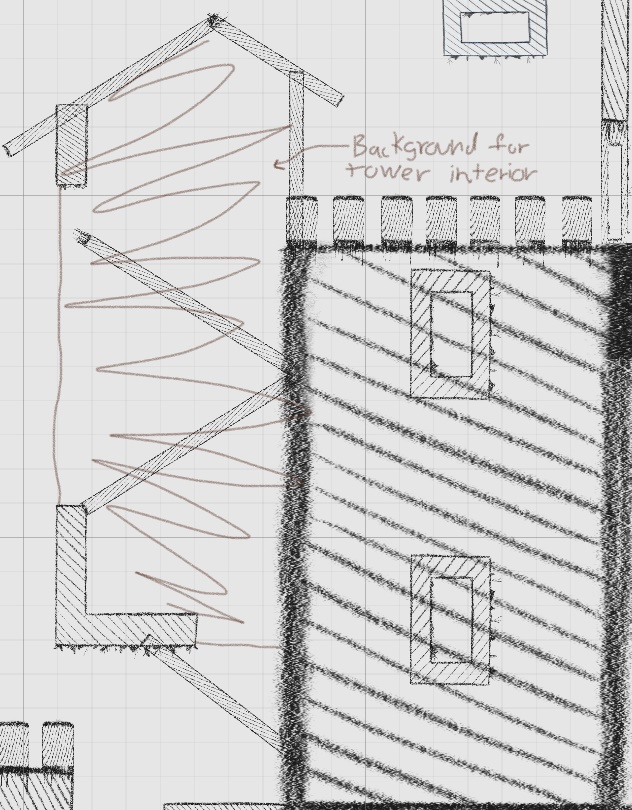 Background for
tower interior